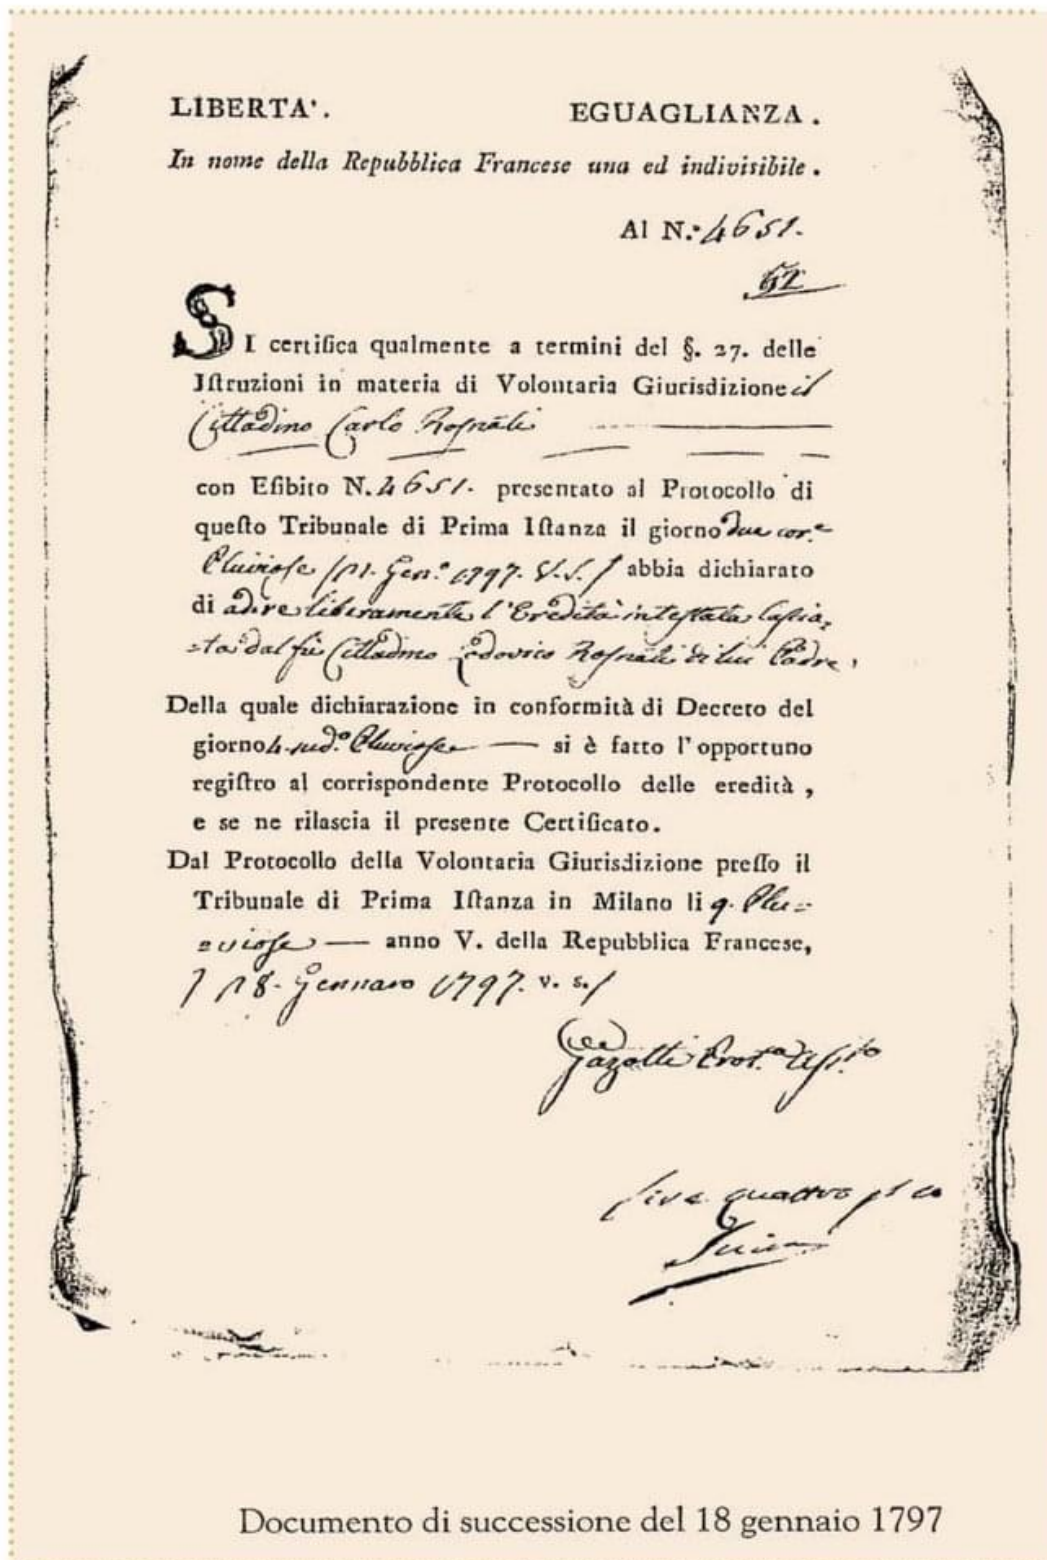 LIBERTA'. EGUAGLIANZA.
In nome della Repubblica Francese una ed indivisibile.
Al N.º 4651.
52
SI certifica qualmente a termini del §. 27. delle
Iſtruzioni in materia di Volontaria Giurisdizione il
Cittadino Carlo Roſnati
con Eſibito N. 4651. presentato al Protocollo di
queſto Tribunale di Prima Iſtanza il giorno due cor.e
Pluviose /21. Gen.o 1797. V.S./ abbia dichiarato
di adire liberamente l'Eredità intestata laſcia=
=ta dal fù Cittadino Lodovico Roſnati di lui Padre,
Della quale dichiarazione in conformità di Decreto del
giorno 4. sud.o Pluviose — si è fatto l'opportuno
regiſtro al corrispondente Protocollo delle eredità,
e se ne rilascia il presente Certificato.
Dal Protocollo della Volontaria Giurisdizione preſſo il
Tribunale di Prima Iſtanza in Milano li 9. Plu=
=viose — anno V. della Repubblica Francese,
/ 28. Gennaro 1797. v. s./
Lire quattro
Documento di successione del 18 gennaio 1797